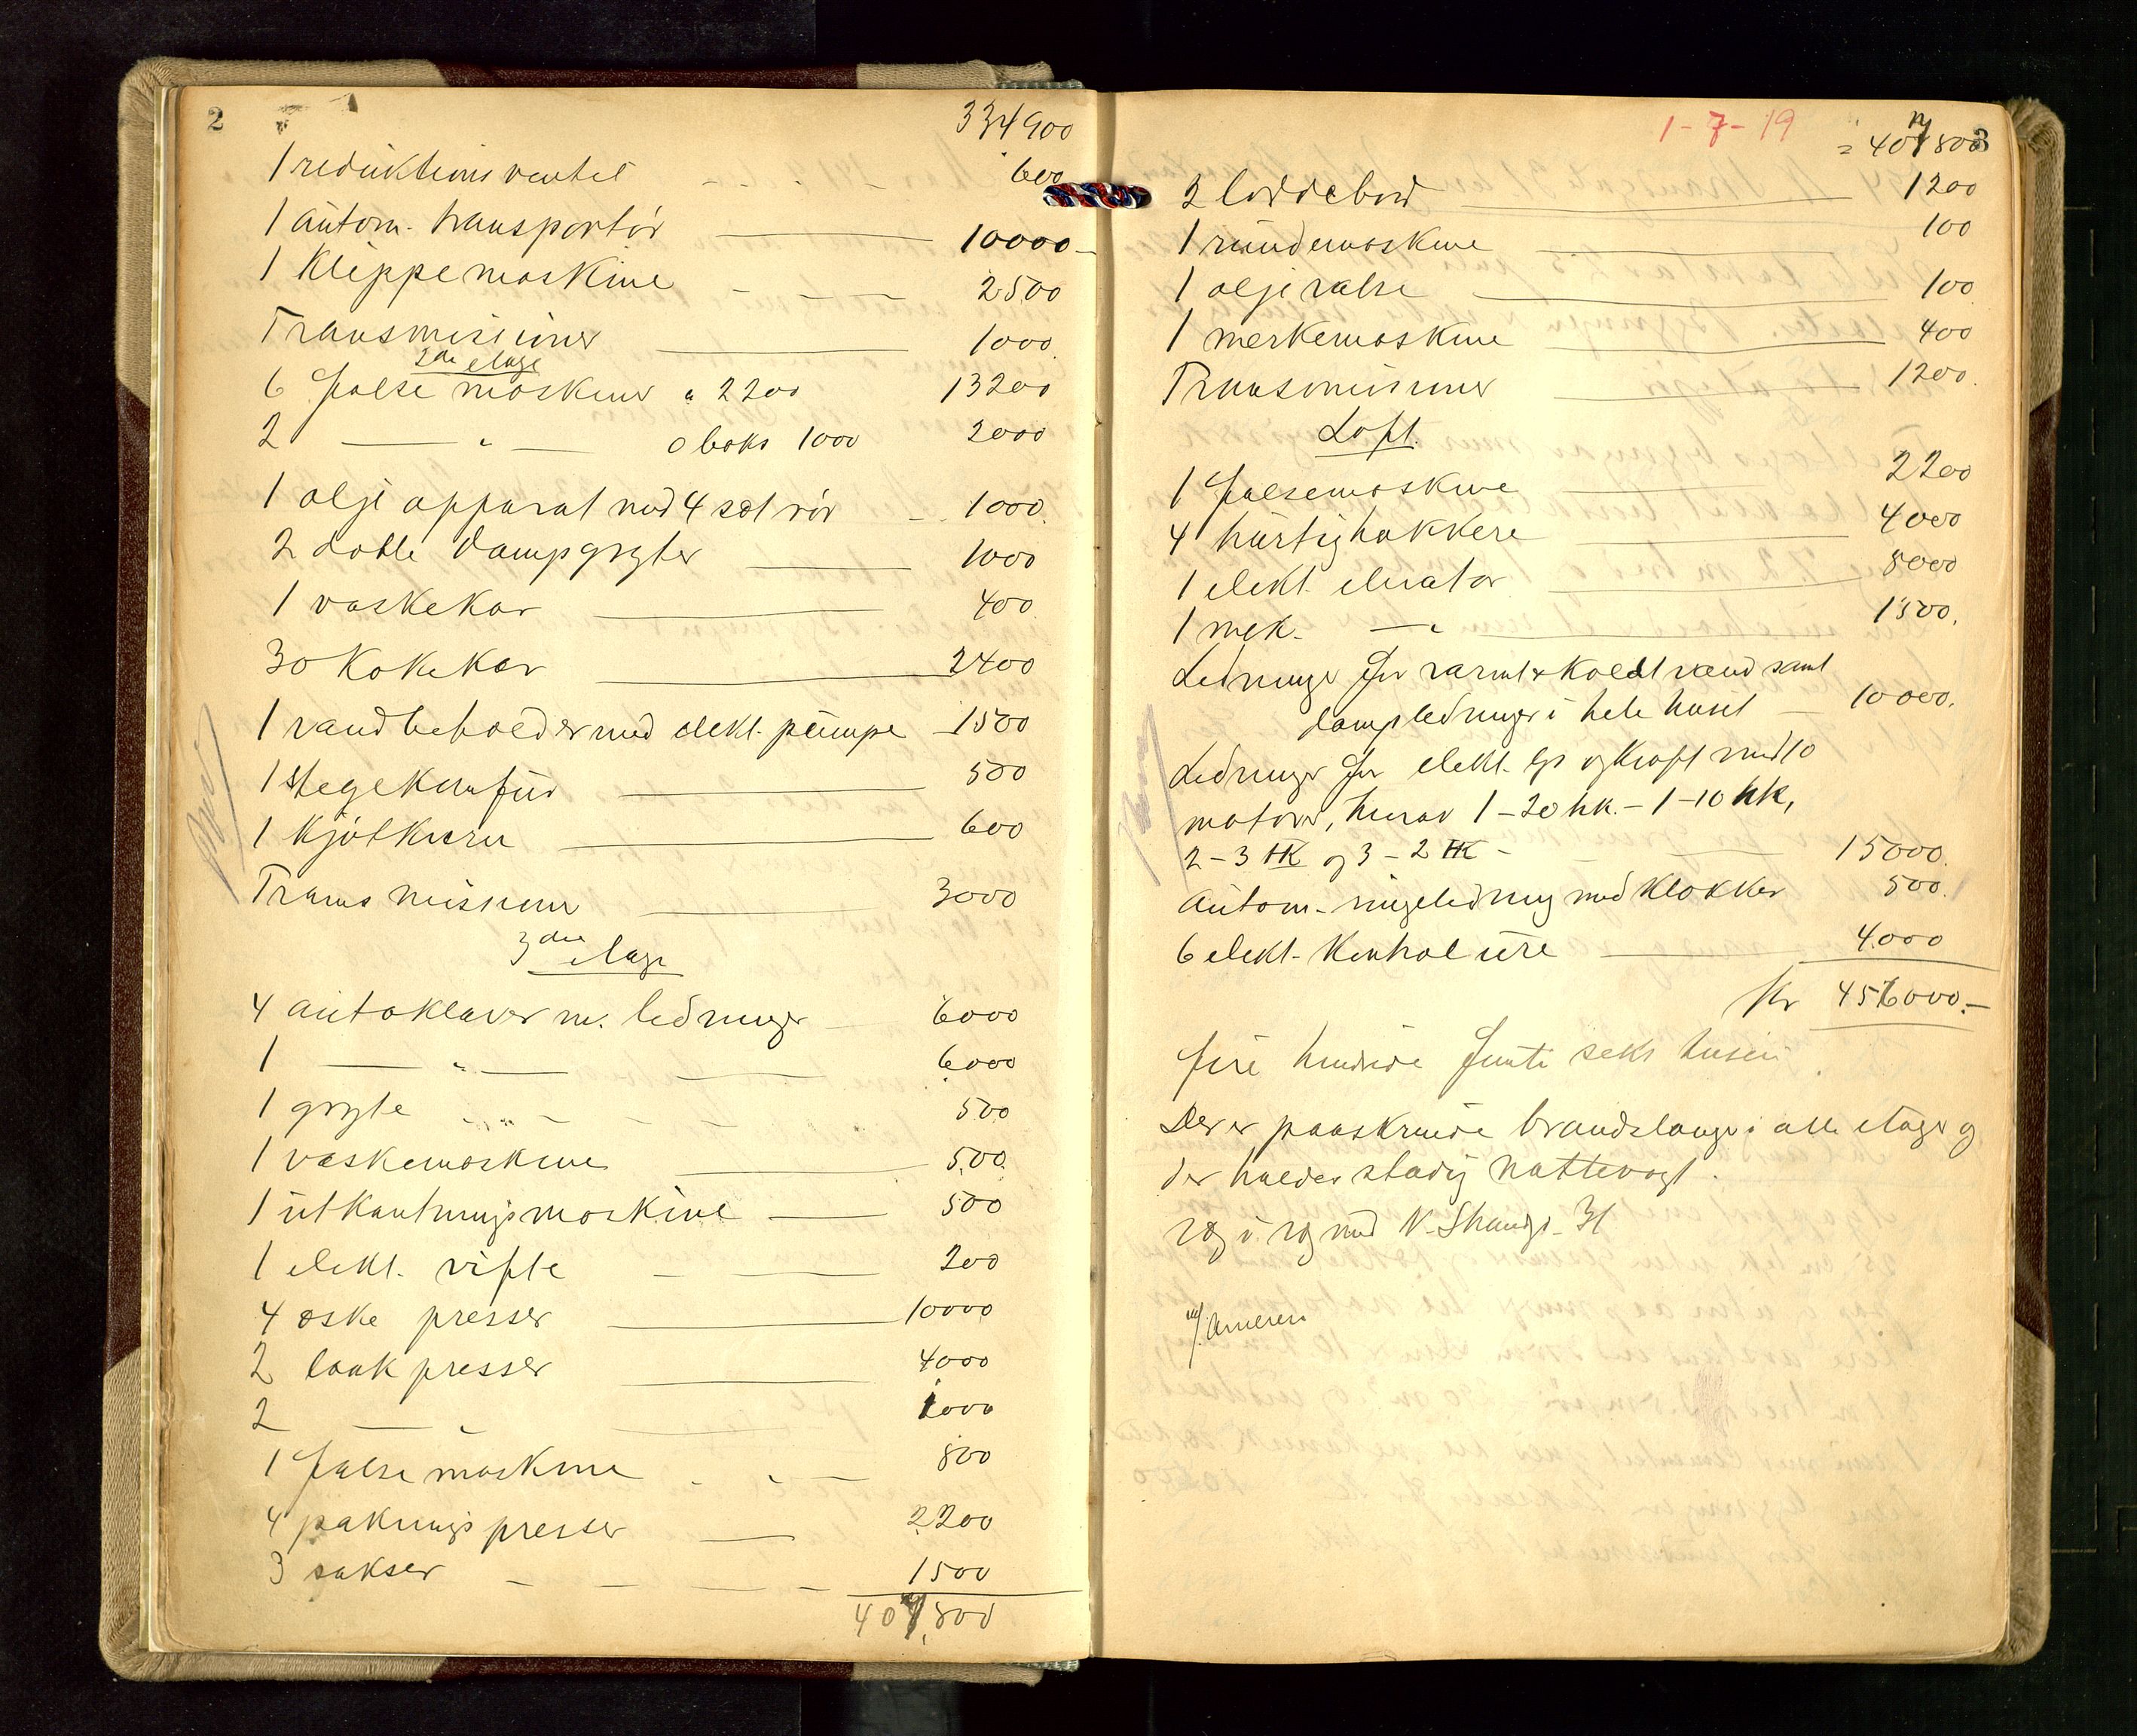 2
334900
1 reduktionsventil 600
1 autom. transportør 10000-
1 Klippemaskine 2500
Transmissioner 1000
2de etage
6 falsemaskiner a 2200 13200
2 — " — a boks 1000 2000
1 olje apparat med 4 sæt rør 1000.
2 doble dampgryter 1000
1 vaskekar 400
30 Kokekar 2400
1 vandbeholder med elekt. pumpe 1500
1 stegekomfur 500
1 kjøtkvern 600
Transmissioner 3000
3die etage
4 autoklaver m. ledninger 6000
1 — " — 6000
1 gryte 500
1 vaskemaskine 500.
1 utkantningsmaskine 500
1 elekt. vifte 200
4 æske presser 10000
2 laak presser 4000
2 — " 1000
1 false maskine 800
4 paknings presser 2200
3 sakser 1500
407,800
1-7-19
3
= 407800
2 loddebord 1200
1 rundemaskine 100
1 oljevalse 100
1 merkemaskine 400
Transmissioner 1200.
Loft.
1 falsemaskine 2200
4 hurtighakkere 4000
1 elekt. elevator 8000
1 mek. — " 1500.
Ledninger for varmt & koldt vand samt
dampledninger i hele huset 10000.
Ledninger for elekt. lys og kraft med 10
motorer, hvorav 1-20 hk. - 1-10 hk,
2-3 HK og 3-2 HK - 15000.
Autom. ringeledning med klokker 500.
6 elekt. Kontrol ure 4000
Kr 456000.-
fire hundrede femti seks tusen
Der er paaskruede brandslanger i alle etager og
der holdes stadig nattevagt.
ryg i ryg med N. Strandgt. 31